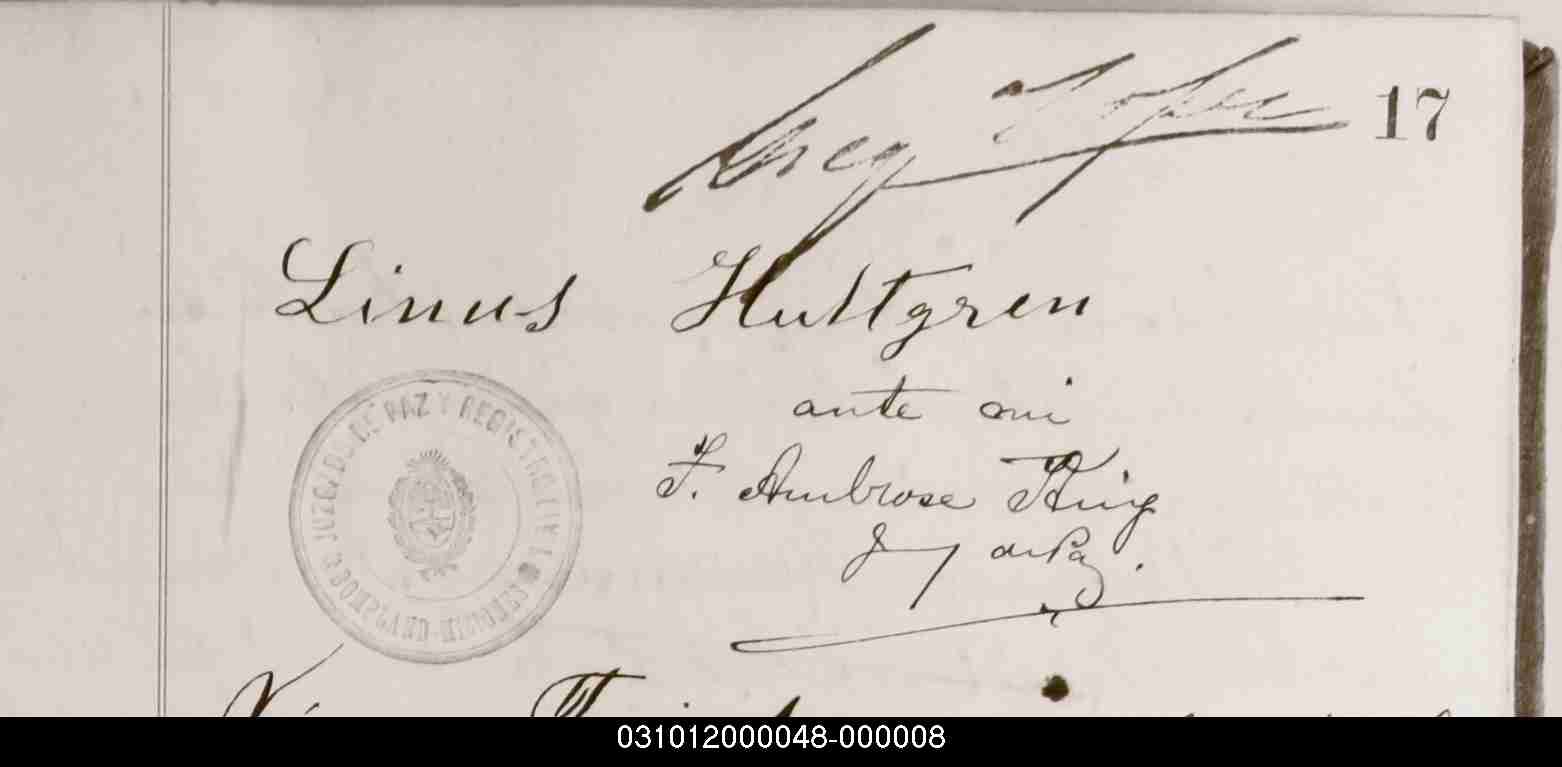 Greg Lopez
17
Linus Hultgren
ante mi
F. Ambrose King
Juez de Paz.
JUZGADO DE PAZ Y REGISTRO CIVIL
BONPLAND-MISIONES
031012000048-000008